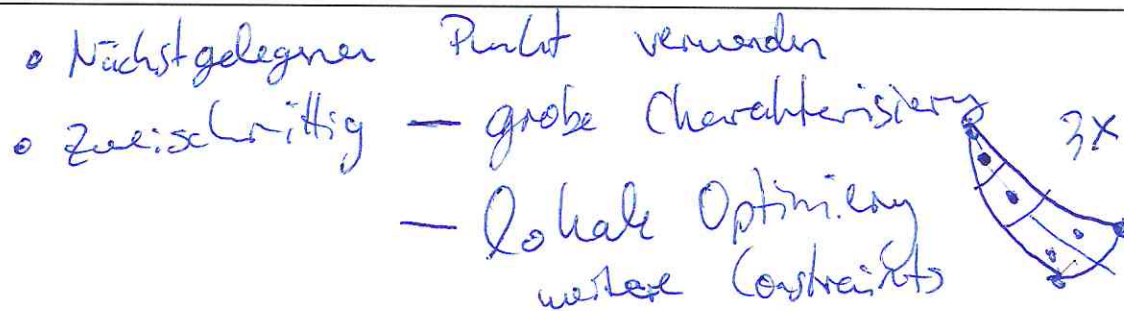 • Nächstgelegenen Punkt verwenden
• Zweischrittig — grobe Charakterisierung
— lokale Optimierung
weitere Constraints
3x